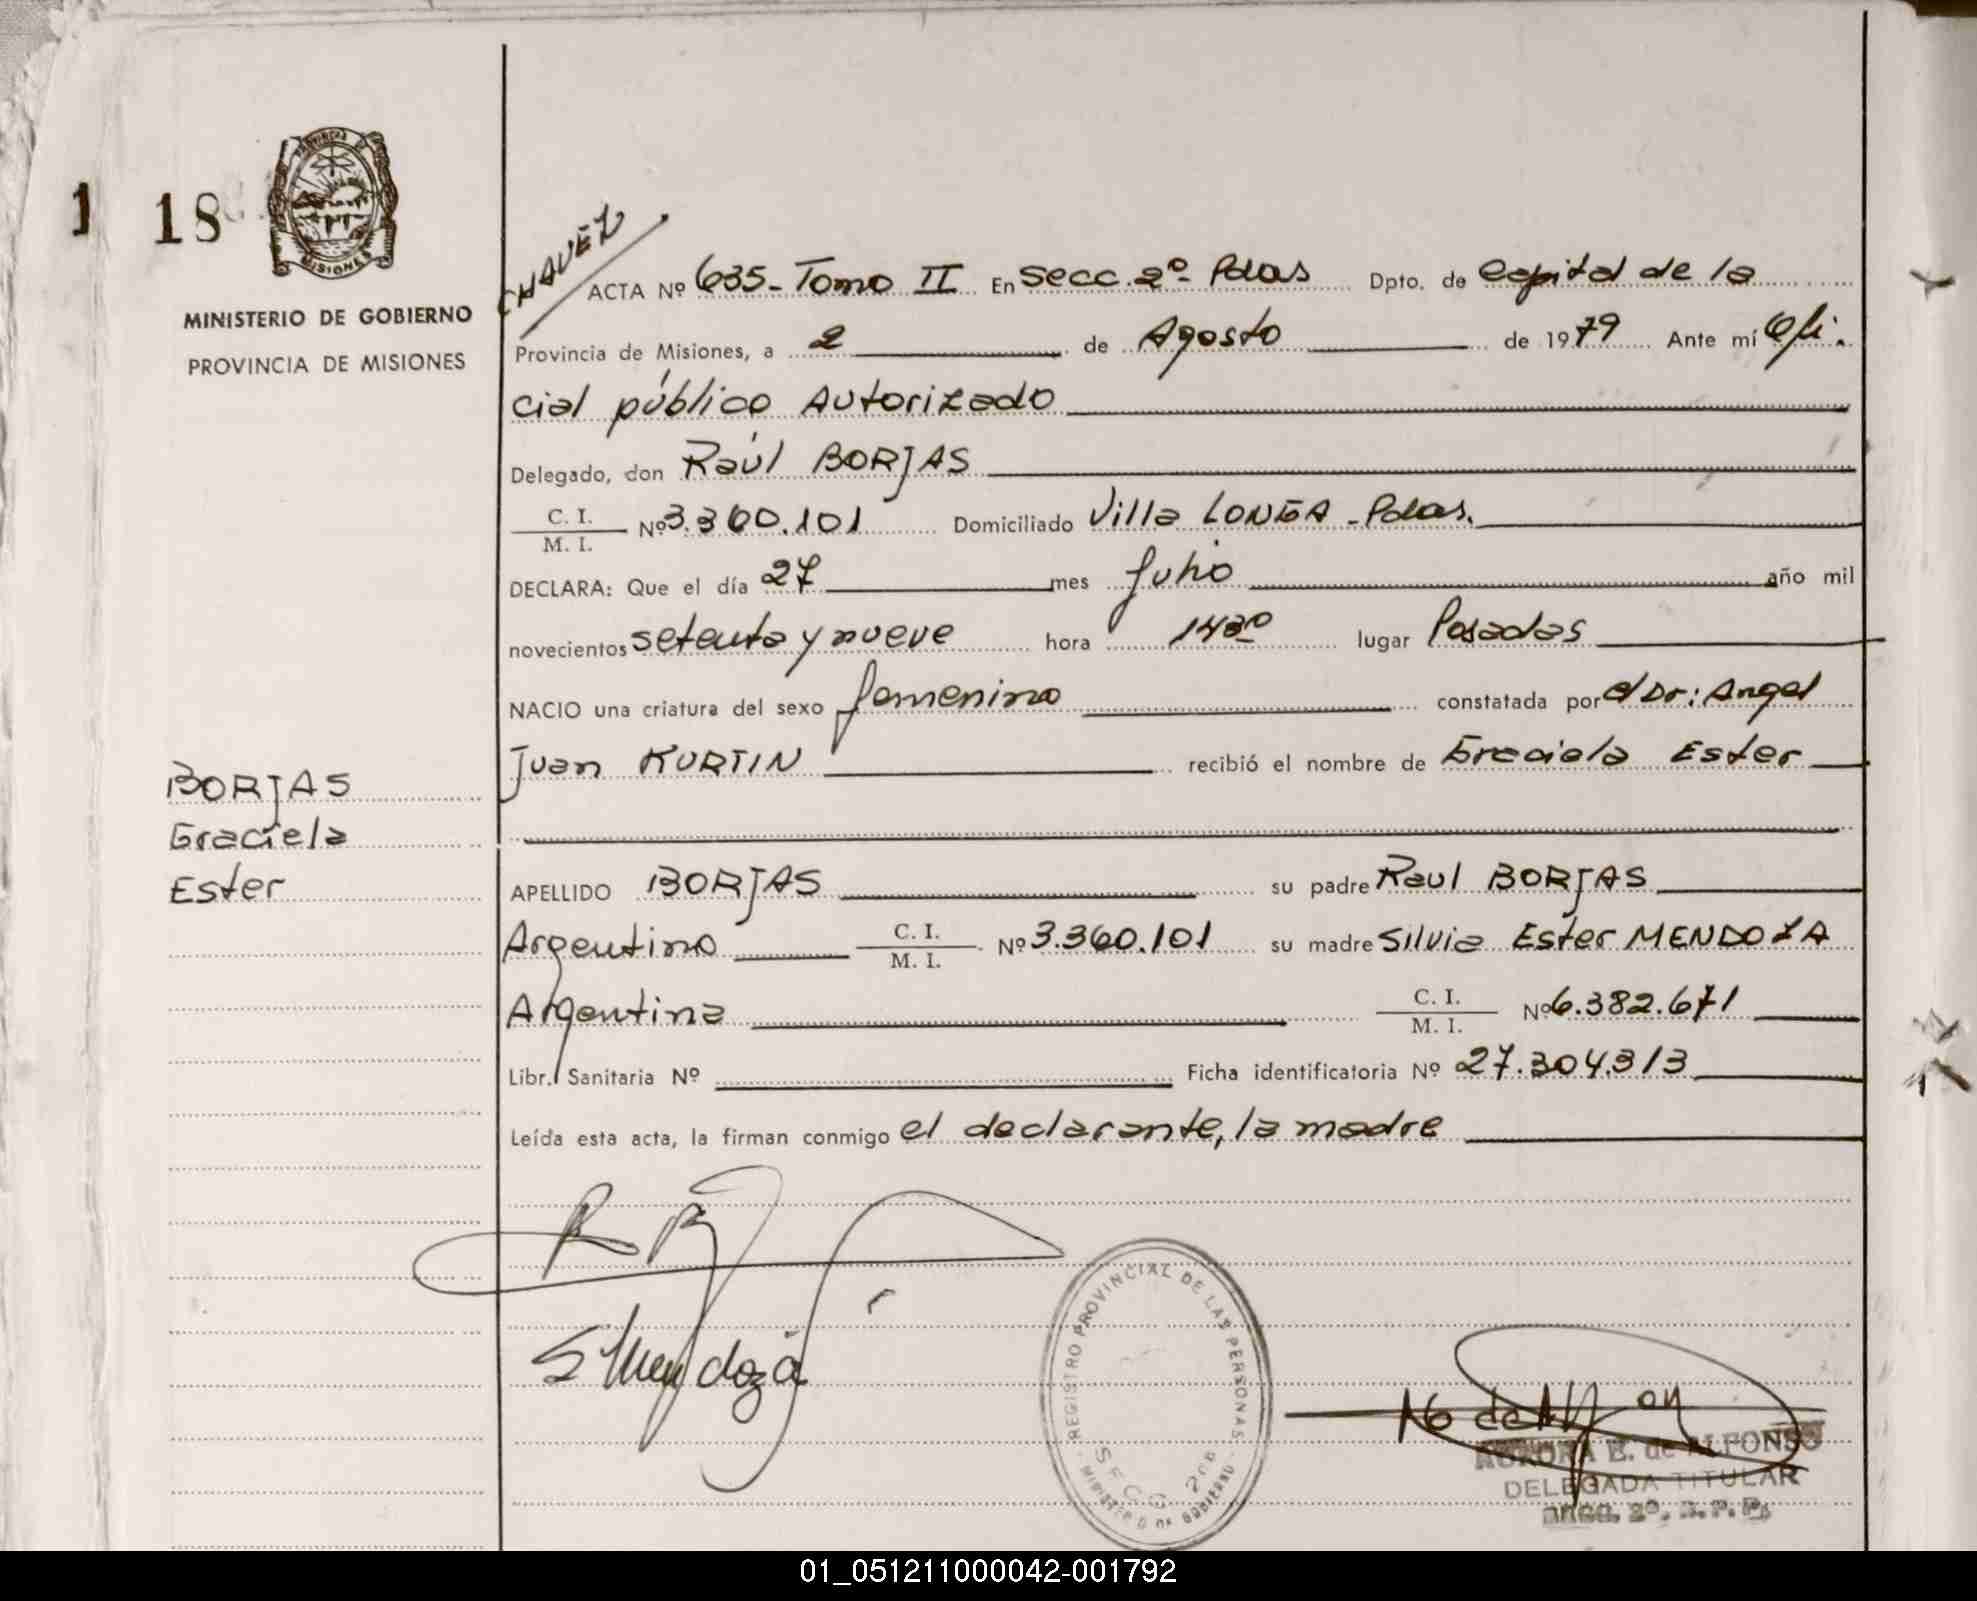 1 18
PROVINCIA DE
MISIONES
MINISTERIO DE GOBIERNO
PROVINCIA DE MISIONES
CHAVEZ
ACTA Nº 635- Tomo II En Secc. 2º- Pdas Dpto. de Capital de la
Provincia de Misiones, a 2 de Agosto de 1979 Ante mí Ofi.
cial público Autorizado
Delegado, don Raúl BORJAS
C. I.
M. I. Nº 3.360.101 Domiciliado Villa LONGA - Pdas.
DECLARA: Que el día 27 mes Julio año mil
novecientos setenta y nueve hora 1430 lugar Posadas
NACIO una criatura del sexo femenino constatada por el Dr: Angel
Juan KURTIN recibió el nombre de Graciela Ester
BORJAS
Graciela
Ester
APELLIDO BORJAS su padre Raul BORJAS
Argentino C. I.
M. I. Nº 3.360.101 su madre Silvia Ester MENDOZA
Argentina C. I.
M. I. Nº 6.382.671
Libr. Sanitaria Nº Ficha identificatoria Nº 27.304.313
Leída esta acta, la firman conmigo el declarante, la madre
S Mendoza
REGISTRO PROVINCIAL DE LAS PERSONAS
SECC 2da
MINISTERIO DE GOBIERNO
AURORA E. de ALFONSO
DELEGADA TITULAR
SECC. 2º. R. P. P.
01_051211000042-001792